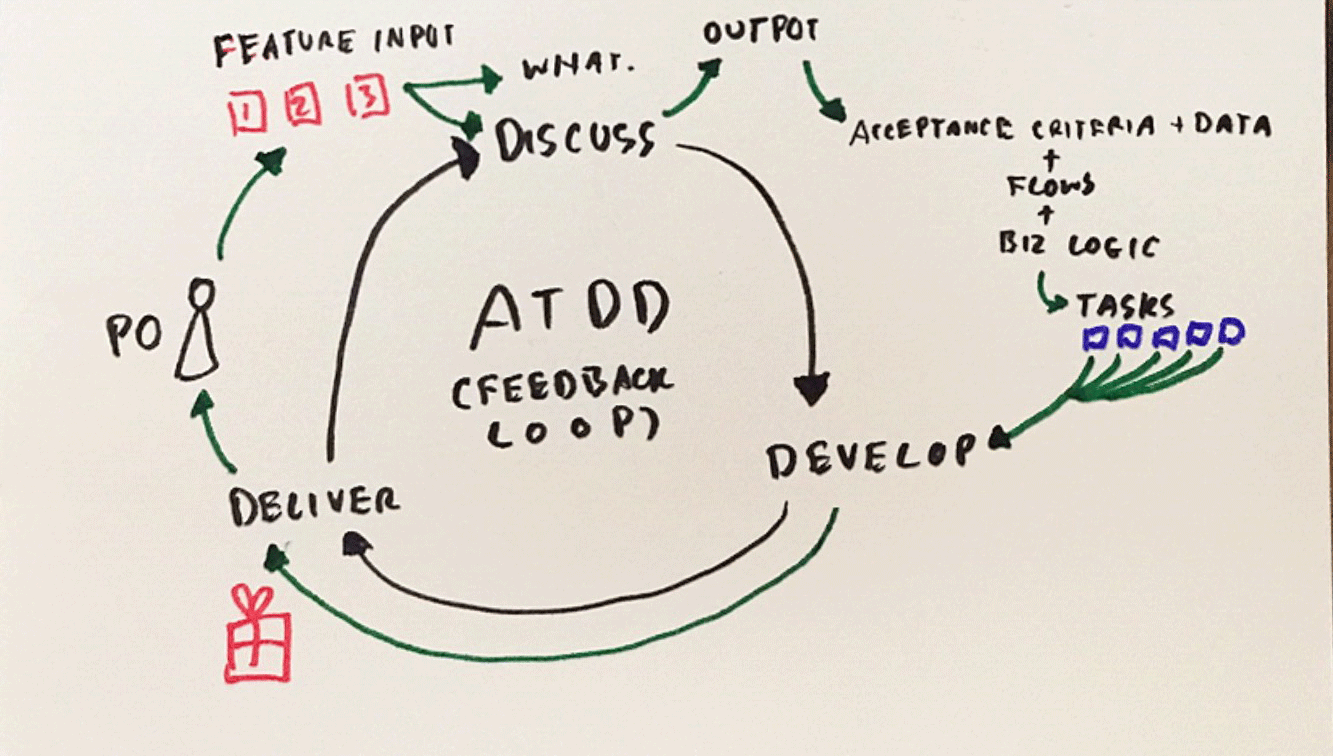 FEATURE INPUT
1 2 3
WHAT.
OUTPUT
DISCUSS
ACCEPTANCE CRITERIA + DATA
+
FLOWS
+
BIZ LOGIC
TASKS
PO
ATDD
(FEEDBACK
LOOP)
DEVELOP
DELIVER